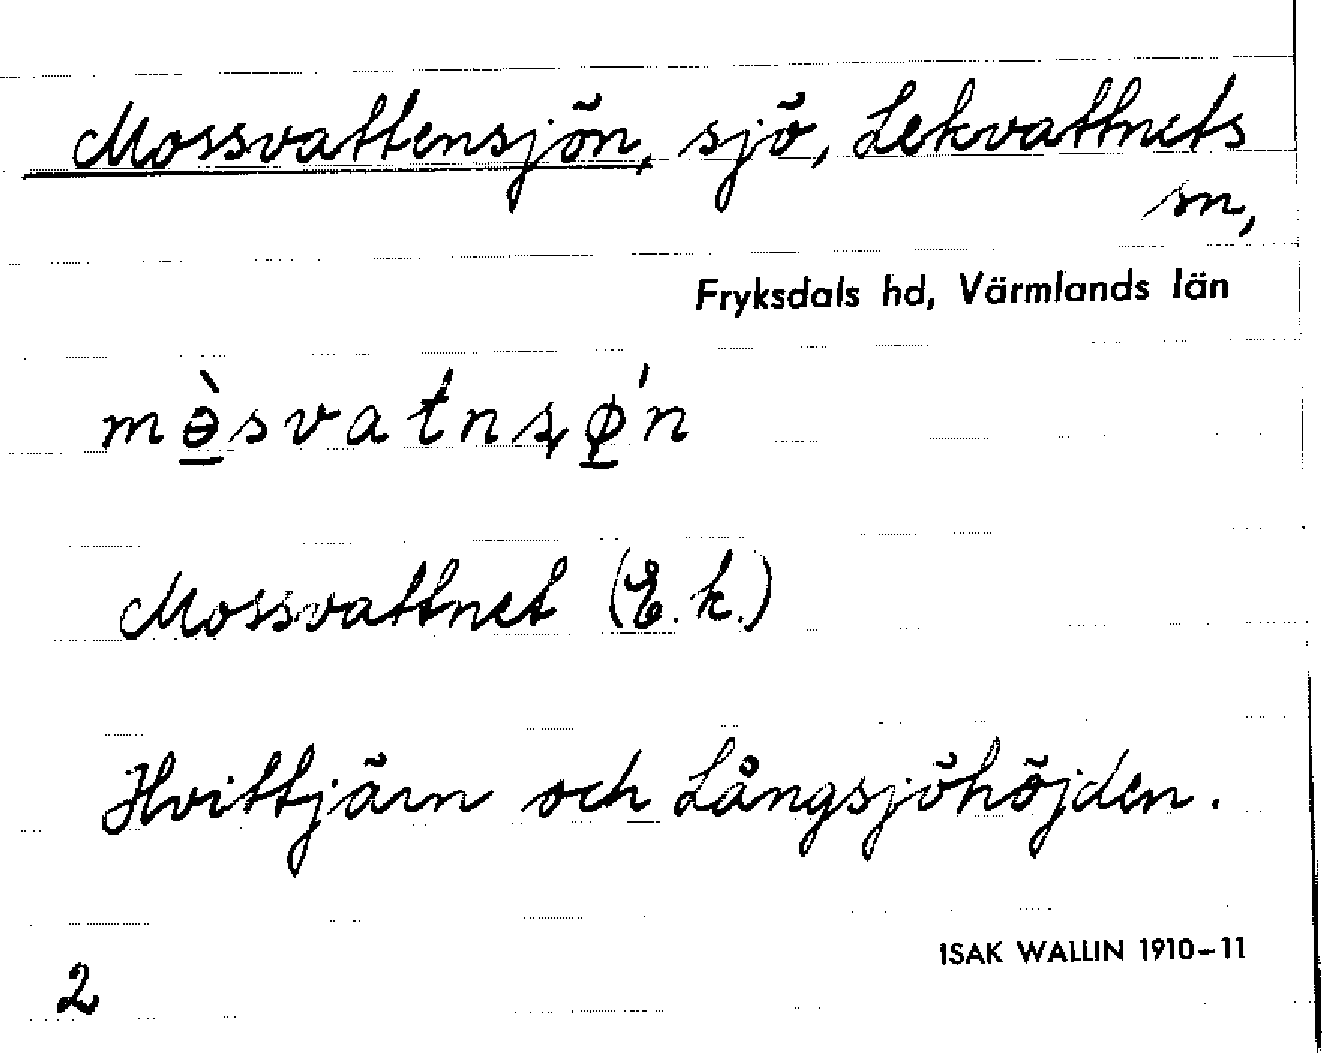 Mossvattensjön, sjö, Lekvattnets
sn,
Fryksdals hd, Värmlands län
mə̱̀svatnʂǿ̱n
Mossvattnet (E.k.)
Hvittjärn och Långsjöhöjden.
ISAK WALLIN 1910–11
2